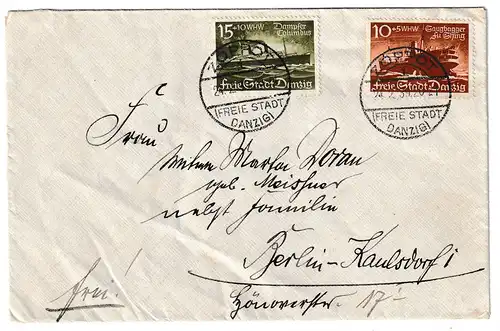 15+10 WHW Dampfer "Columbus"
Freie Stadt Danzig
10+5 WHW Saugbagger
Freie Stadt Danzig
ZOPPOT
(FREIE STADT DANZIG)
ZOPPOT
(FREIE STADT DANZIG)
Frau
Witwe Martha Doran
geb. Meissner
nebst Familie
Berlin-Kaulsdorf
frei!
17